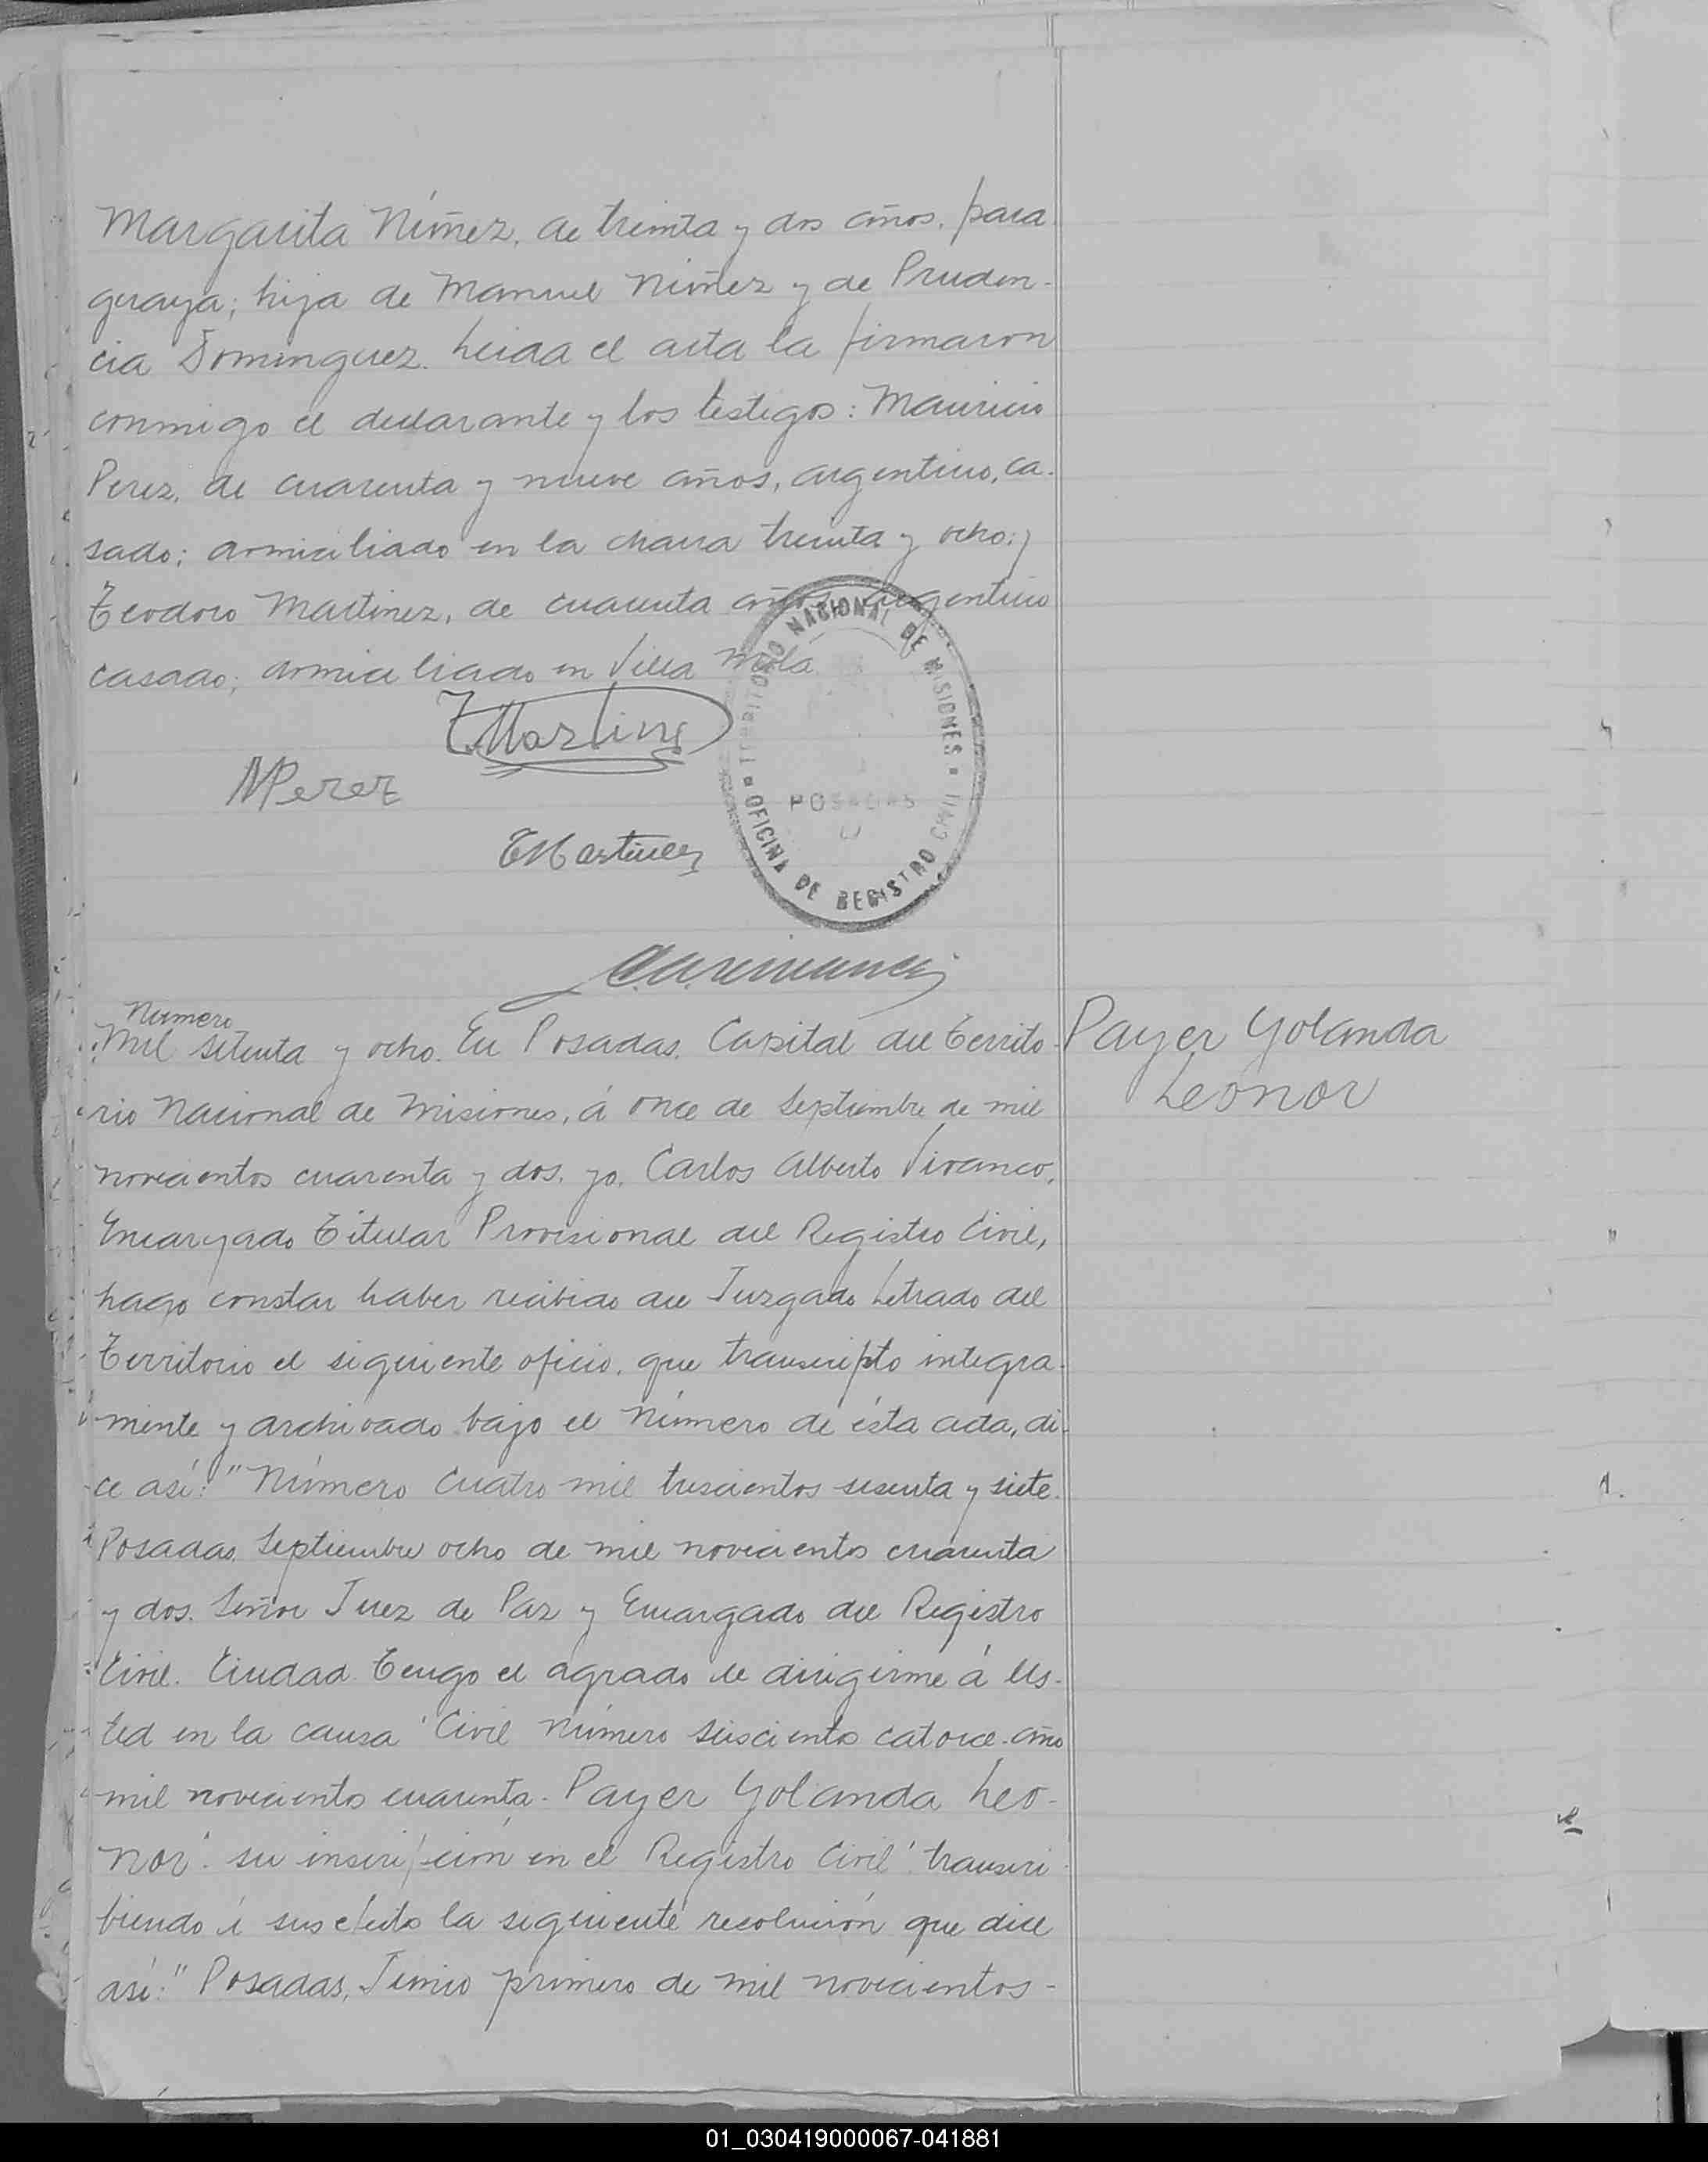 Margarita Núñez, de treinta y dos años, para
guaya; hija de Manuel Núñez y de Pruden-
cia Dominguez. Leida el acta la firmaron
conmigo el declarante y los testigos: Mauricio
Perez, de cuarenta y nueve años, argentino, ca-
sado; domiciliado en la chacra treinta y ocho; y
Teodoro Martinez, de cuarenta años, argentino
casado; domiciliado en Villa Mola
TERRITORIO NACIONAL DE MISIONES
OFICINA DE REGISTRO CIVIL
POSADAS
MPerez
TMartinez
Número
Mil setenta y ocho. En Posadas, Capital del Territo-
rio Nacional de Misiones, á once de Septiembre de mil
novecientos cuarenta y dos, yo, Carlos Alberto Vivanco,
Encargado Titular Provisional del Registro Civil,
hago constar haber recibido del Juzgado Letrado del
Territorio el siguiente oficio, que transcripto integra-
mente y archivado bajo el número de ésta acta, di-
ce asi: "Número Cuatro mil trescientos sesenta y siete.
Posadas, Septiembre ocho de mil novecientos cuarenta
y dos. Señor Juez de Paz y Encargado del Registro
Civil. Ciudad. Tengo el agrado de dirigirme á Us-
ted en la causa "Civil número seiscientos catorce año
mil novecientos cuarenta. Payer Yolanda Leo-
nor". su inscripción en el Registro Civil" transcri-
biendo á sus efectos la siguiente resolución que dice
así: "Posadas, Junio primero de mil novecientos-
Payer Yolanda
Leonor
01_030419000067-041881